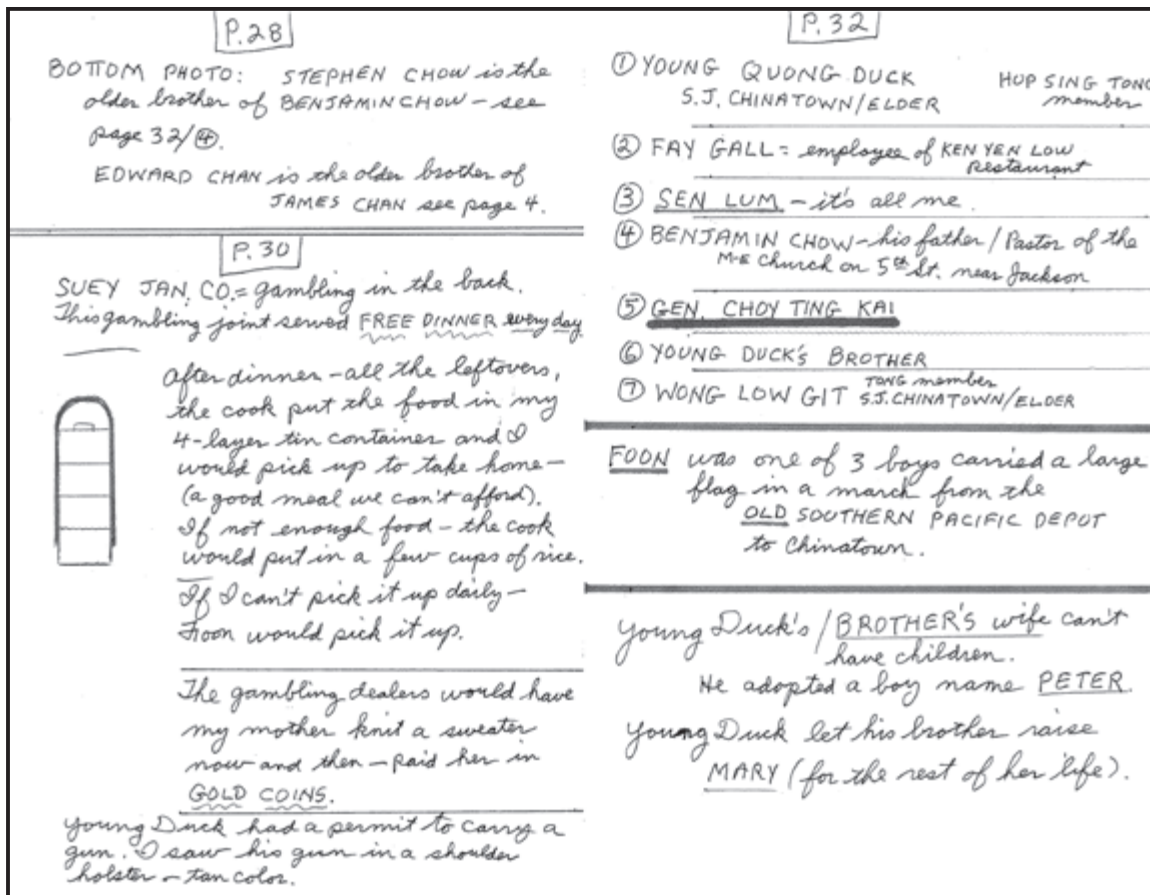 P.28
BOTTOM PHOTO: STEPHEN CHOW is the
older brother of BENJAMIN CHOW – see
page 32/④.
EDWARD CHAN is the older brother of
JAMES CHAN see page 4.
P.30
SUEY JAN. CO. = gambling in the back.
This gambling joint served FREE DINNER every day
After dinner – all the leftovers,
the cook put the food in my
4-layer tin container and I
would pick up to take home –
(a good meal we can't afford).
If not enough food – the cook
would put in a few cups of rice.
If I can't pick it up daily –
Foon would pick it up.
The gambling dealers would have
my mother knit a sweater
now and then – paid her in
GOLD COINS.
Young Duck had a permit to carry a
gun. I saw his gun in a shoulder
holster – tan color.
P.32
① YOUNG QUONG DUCK HUP SING TONG
S.J. CHINATOWN/ELDER member
② FAY GALL = employee of KEN YEN LOW
Restaurant
③ SEN LUM – it's all me.
④ BENJAMIN CHOW – his father / Pastor of the
M-E Church on 5th St. near Jackson
⑤ GEN. CHOY TING KAI
⑥ YOUNG DUCK'S BROTHER
⑦ WONG LOW GIT TONG member
S.J. CHINATOWN/ELDER
FOON was one of 3 boys carried a large
flag in a march from the
OLD SOUTHERN PACIFIC DEPOT
to Chinatown.
Young Duck's / BROTHER'S wife can't
have children.
He adopted a boy name PETER.
Young Duck let his brother raise
MARY (for the rest of her life).